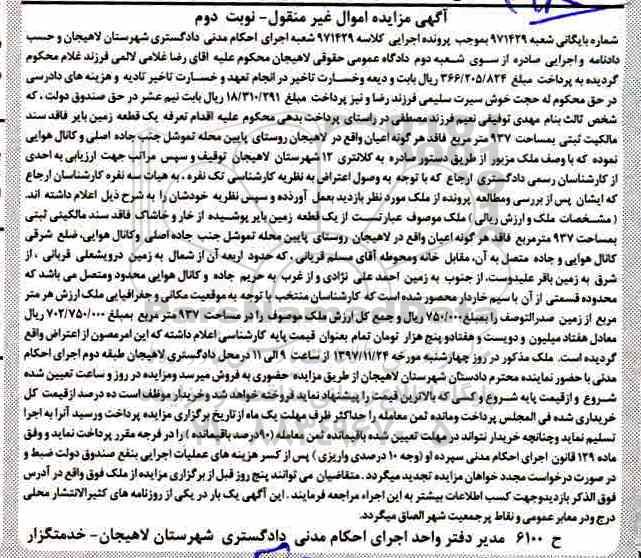 آگهی مزایده اموال غیر منقول- نوبت دوم
شماره بایگانی شعبه ۹۷۱۴۲۹ بموجب پرونده اجرایی کلاسه ۹۷۱۴۲۹ شعبه اجرای احکام مدنی دادگستری شهرستان لاهیجان و حسب
دادنامه و اجرایی صادره از سوی شعبه دوم دادگاه عمومی حقوقی لاهیجان محکوم علیه اقای رضا غلامی لالمی فرزند غلام محکوم
گردیده به پرداخت مبلغ ۳۶۶/۲۰۵/۸۲۴ ریال بابت و دیعه وخسارت تاخیر در انجام تعهد و خسارت تاخیر تادیه و هزینه های دادرسی
در حق محکوم له حجت خوش سیرت سلیمی فرزند رضا و نیز پرداخت مبلغ ۱۸/۳۱۰/۲۹۱ ریال بابت نیم عشر در حق صندوق دولت ، که
شخص ثالث بنام مهدی توفیقی نعیم فرزند مصطفی در راستای پرداخت بدهی محکوم علیه اقدام تعرفه یک قطعه زمین بایر فاقد سند
مالکیت ثبتی بمساحت ۹۳۷ متر مربع فاقد هر گونه اعیان واقع در لاهیجان روستای پایین محله تموشل جنب جاده اصلی و کانال هوایی
نموده که با وصف ملک مزبور از طریق دستور صادره به کلانتری ۱۲ شهرستان لاهیجان توقیف و سپس مراتب جهت ارزیابی به احدی
از کارشناسان رسمی دادگستری ارجاع که با توجه به وصول اعتراض به نظریه کارشناسی تک نفره ، به هیات سه نفره کارشناسان ارجاع
که ایشان پس از بررسی ومطالعه پرونده از ملک مورد نظر بازدید بعمل آورذده و سپس نظریه خودشان را به شرح ذیل اعلام داشته اند.
( مشخصات ملک و ارزش ریالی ) ملک موصوف عبارتست از یک قطعه زمین بایر پوشیده از خار و خاشاک فاقد سند مالکیتی ثبتی
بمساحت ۹۳۷ مترمربع فاقد هر گونه اعیان واقع در لاهیجان روستای پایین محله تموشل جنب جاده اصلی وکانال هوایی، ضلع شرقی
کانال هوایی و جاده متصل به آن، مقابل خانه ومحوطه آقای مسلم قربانی ، که حدود اربعه آن از شمال به زمین درویشعلی قربانی ، از
شرق به زمین باقر علیدوست، از جنوب به زمین احمد علی نژادی و از غرب به حریم جاده و کانال هوایی محدود ومتصل می باشد که
محدوده قسمتی از آن با سیم خاردار محصور شده است که کارشناسان منتخب با توجه به موقعیت مکانی و جغرافیایی ملک ارزش هر متر
مربع از زمین صدرالتوصف را بمبلغ ۷۵۰/۰۰۰ ریال و جمع کل ارزش ملک موصوف را در مساحت ۹۳۷ متر مربع بمبلغ ۷۰۲/۷۵۰/۰۰۰ ریال
معادل هفتاد میلیون و دویست و هفتادو پنج هزار تومان تمام بعنوان قیمت پایه کارشناسی اعلام داشته که این امرمصون از اعتراض واقع
گردیده است. ملک مذکور در روز چهارشنبه مورخه ۱۳۹۷/۱۱/۲۴ از ساعت ۹ الی ۱۱ درمحل دادگستری لاهیجان طبقه دوم اجرای احکام
مدنی با حضور نماینده محترم دادستان شهرستان لاهیجان از طریق مزایده حضوری به فروش میرسد ومزایده در روز و ساعت تعیین شده
شروع و ازقیمت پایه شروع و کسی که بالاترین قیمت را پیشنهاد نماید فروخته خواهد شد وخریدار موظف است ده درصد ازقیمت کل
خریداری شده فی المجلس پرداخت ومانده ثمن معامله را حداکثر ظرف مهلت یک ماه از تاریخ برگزاری مزایده پرداخت ورسید آنرا به اجرا
تسلیم نماید وچنانچه خریدار نتواند در مهلت تعیین شده باقیمانده ثمن معامله (۹۰درصد باقیمانده ) را در فرجه مقرر پرداخت نماید و وفق
ماده ۱۲۹ قانون اجرای احکام مدنی سپرده او (وجه ۱۰ درصدی واریزی ) پس از کسر هزینه های عملیات اجرایی بنفع صندوق دولت ضبط و
در صورت درخواست مجدد خواهان مزایده تجدید میگردد . متقاضیان می توانند پنج روز قبل از برگزاری مزایده از ملک فوق واقع در آدرس
فوق الذکر بازدیدوجهت کسب اطلاعات بیشتر به این اجراء مراجعه فرمایند . این آگهی یک بار در یکی از روزنامه های کثیرالانتشار محلی
درج ودر معابر عمومی و نقاط پرجمعیت شهر الصاق میگردد.
ح ۶۱۰۰ مدیر دفتر واحد اجرای احکام مدنی دادگستری شهرستان لاهیجان- خدمتگزار